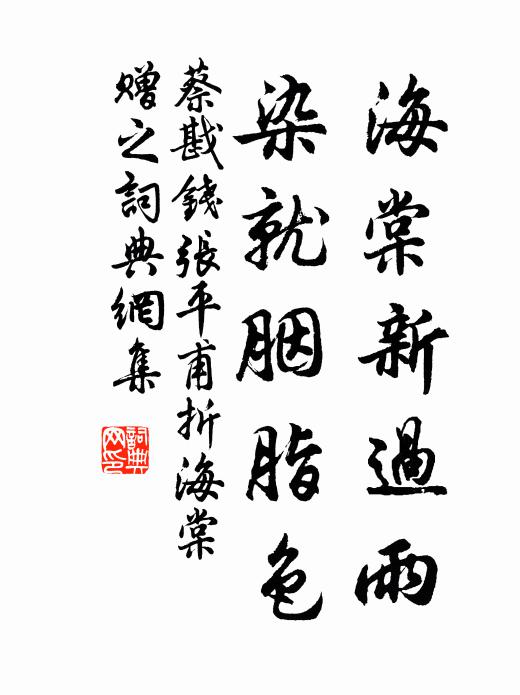 海棠新過雨
染就胭脂色
蔡戡錢張平甫折海棠
贈之詞典網集
詞典
网印